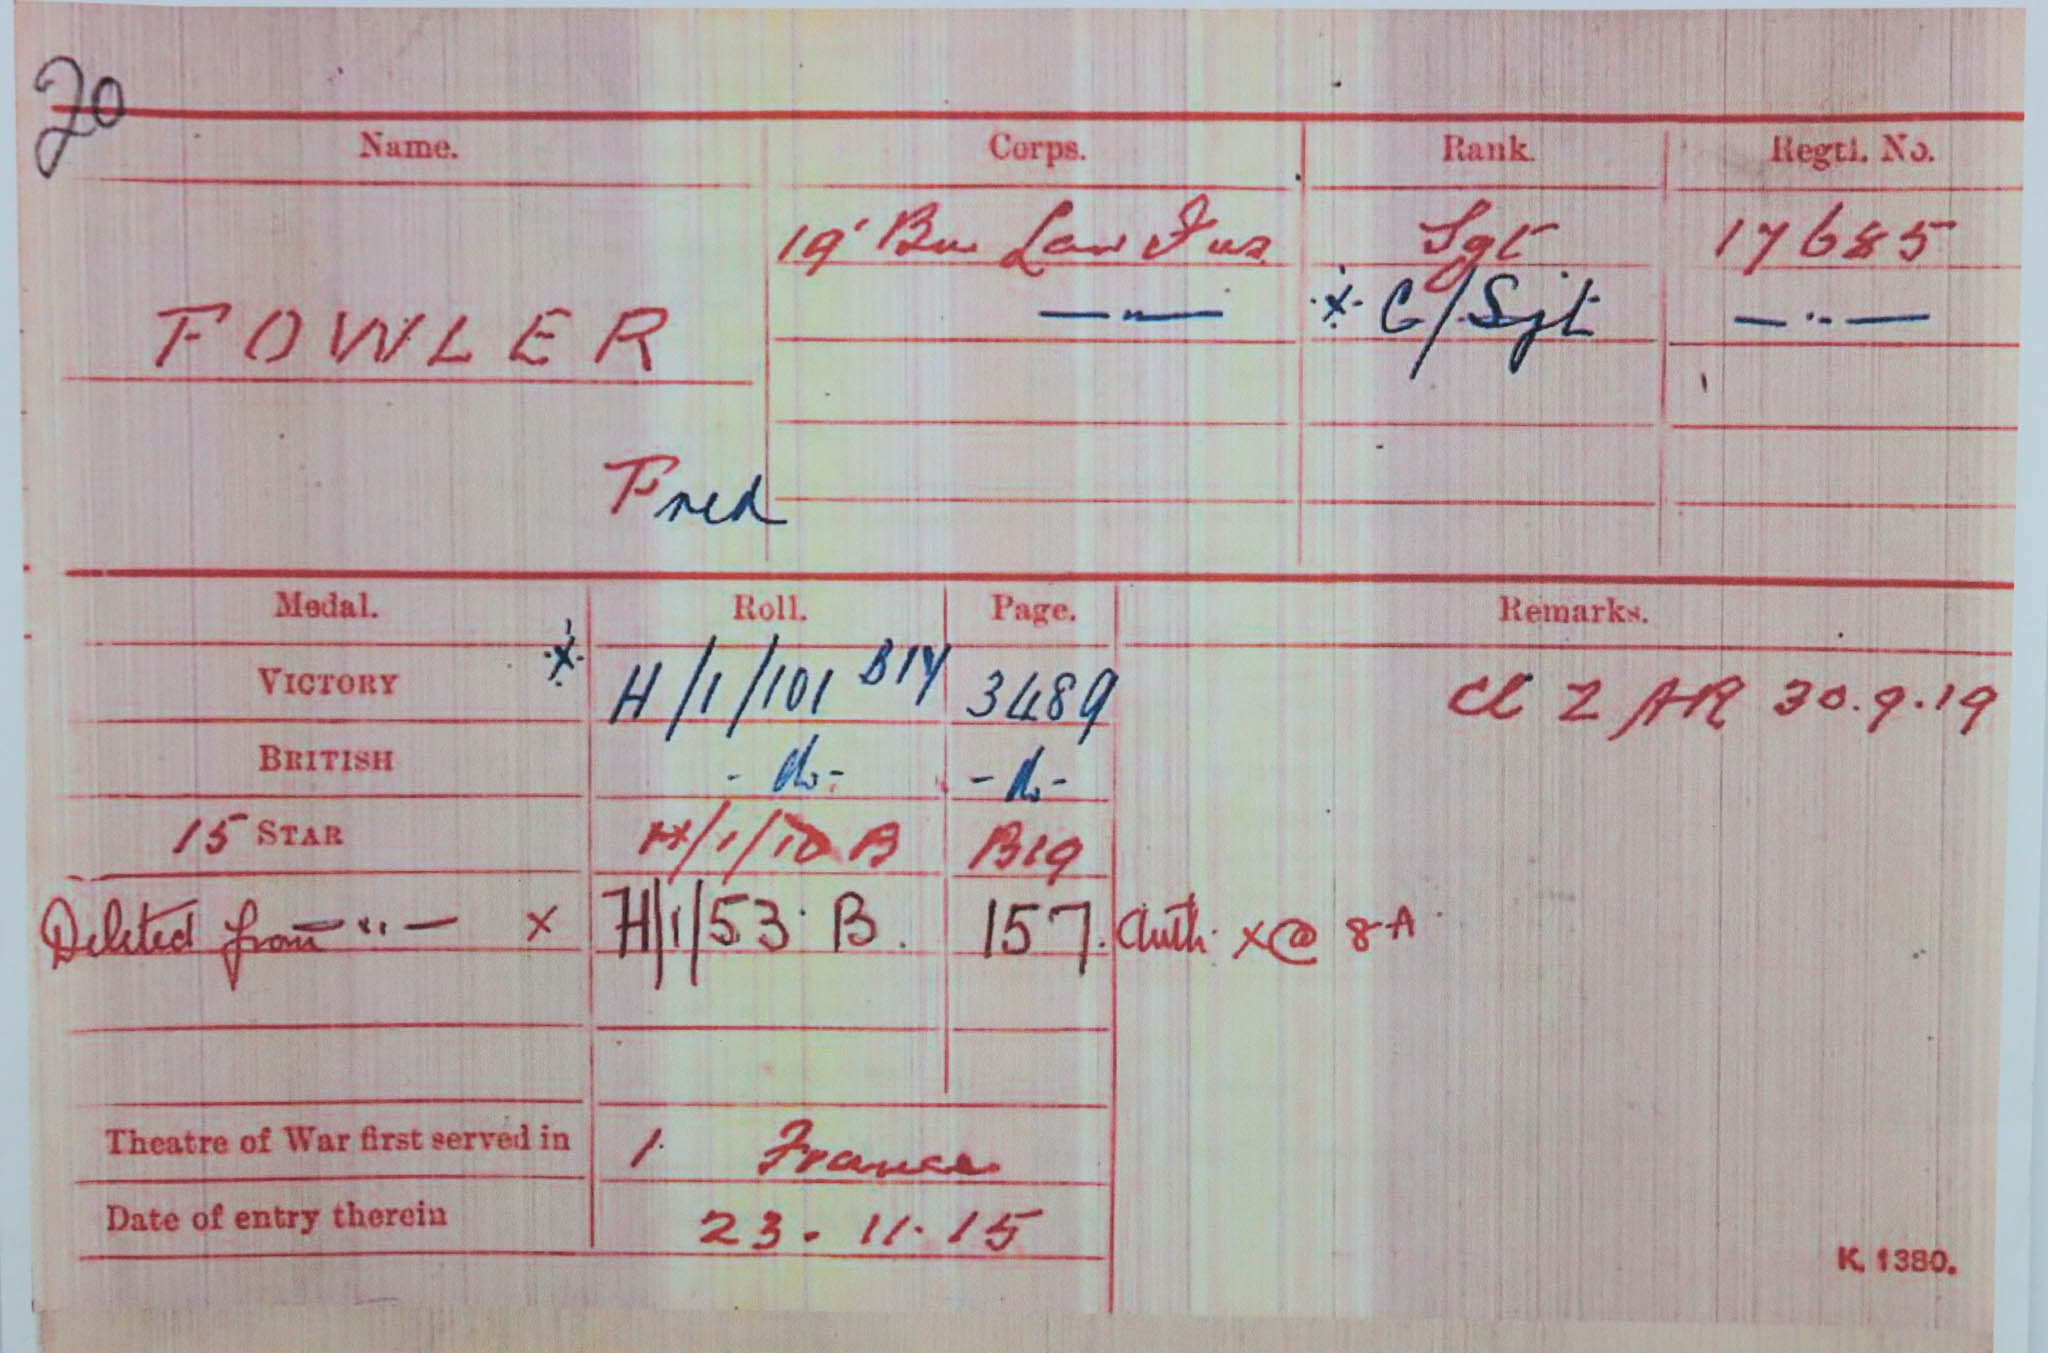 20
Name. Corps. Rank. Regtl. No.
19' Bn Lan Fus Sgt 17685
FOWLER — " — * C/Sjt — " —
Fred
Medal. Roll. Page. Remarks.
VICTORY * H/1/101 B17 3489 Cl Z AR 30.9.19
BRITISH - do - - do -
15 STAR H/1/10 B B19
Deleted from — " — × H/1/53 B. 157. Auth. ×@ 8-A
Theatre of War first served in 1. France
Date of entry therein 23.11.15
K. 1380.